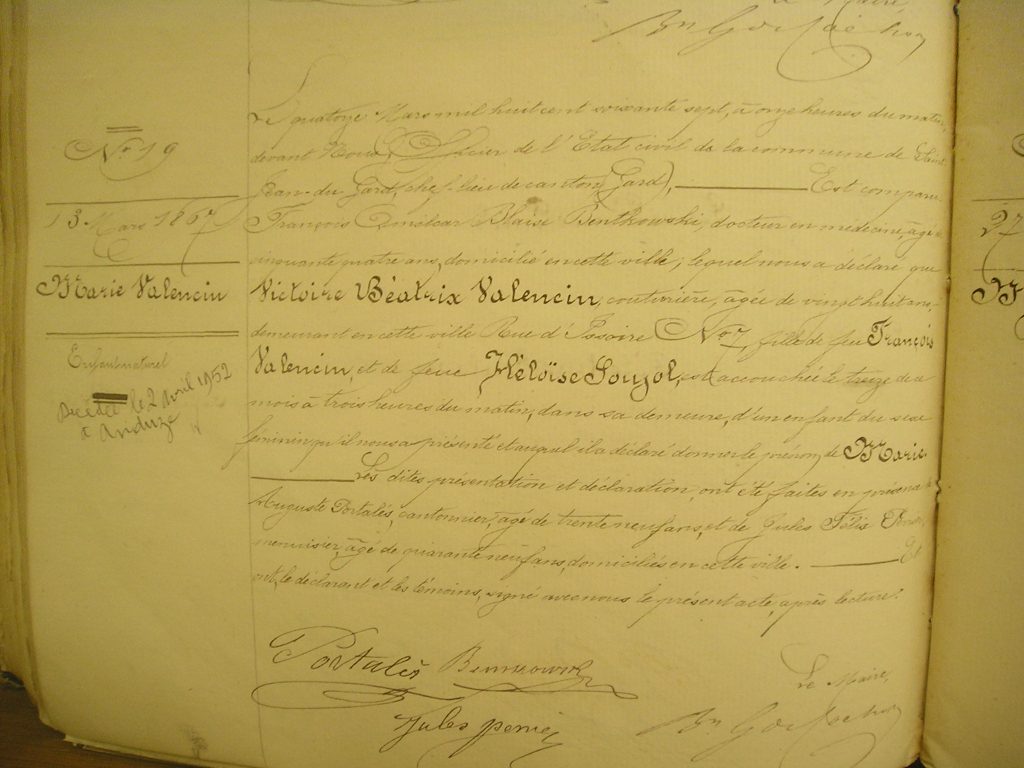 Nº 19
13 Mars 1867
Marie Valencin
Enfant naturel
Décédée le 2 Avril 1952
à Anduze
Le quatorze Mars mil huit cent soixante sept, à onze heures du matin,
devant Nous, Officier de l'Etat civil de la commune de Saint
Jean-du-Gard, chef-lieu de canton (Gard), Est comparu
François Amilcar Blaise Bentkowski, docteur en médecine, âgé de
cinquante quatre ans, domicilié en cette ville; lequel nous a déclaré que
Victoire Béatrix Valencin, couturière, âgée de vingt huit ans,
demeurant en cette ville Rue d'Issoire Nº 7, fille de feu François
Valencin, et de feue Héloïse Soujol, est accouchée le treize de ce
mois à trois heures du matin, dans sa demeure, d'un enfant du sexe
féminin qu'il nous a présenté et auquel il a déclaré donner le prénom de Marie
Les dites présentation et déclaration, ont été faites en présence de
Auguste Portalès, cantonnier, âgé de trente neuf ans, et de Jules Félix
menuisier, âgé de quarante neuf ans, domiciliés en cette ville. Et
ont, le déclarant et les témoins, signé avec nous le présent acte, après lecture.
Portalès
Jules
Le Maire,
27